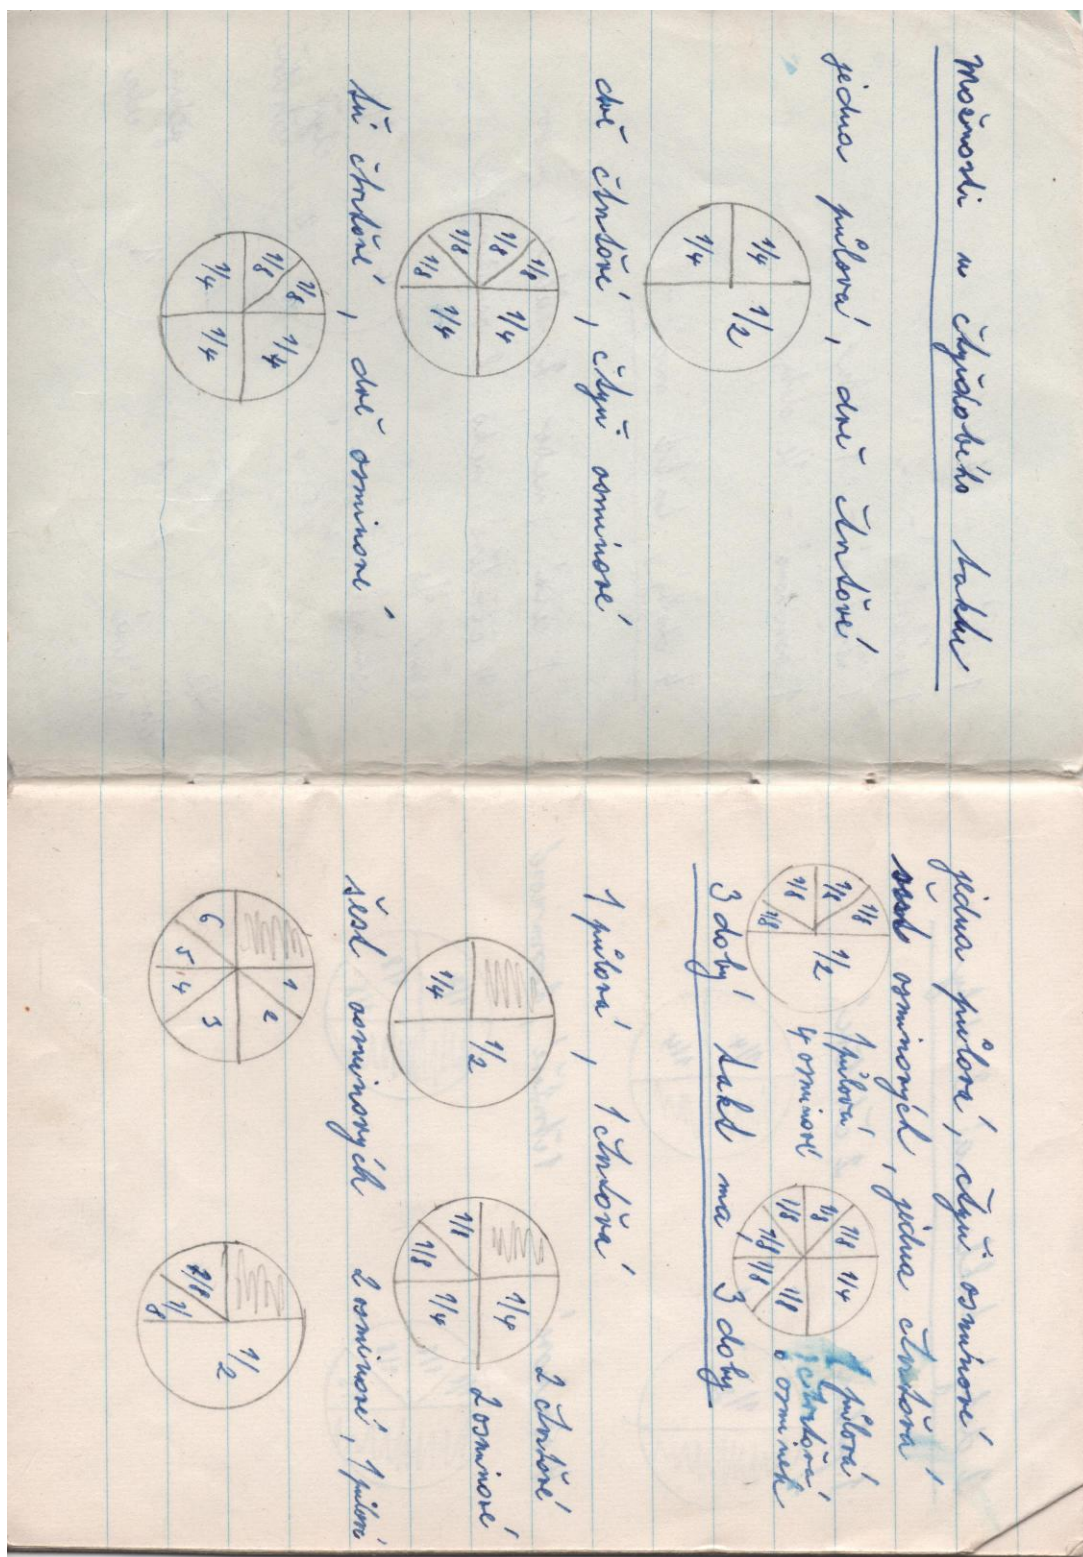 Možnosti u čtyřdobého taktu
jedna půlová, dvě čtvrťové
1/4 1/4 1/2
dvě čtvrťové, čtyři osminové
1/8 1/8 1/8 1/8 1/4 1/4
tři čtvrťové, dvě osminové
1/8 1/8 1/4 1/4 1/4
jedna půlová, čtyři osminové
šest osminových, jedna čtvrťová
1/8 1/8 1/8 1/8 1/2
1 půlová
4 osminové
1/8 1/8 1/8 1/8 1/8 1/8 1/4
půlová
čtvrťová
osminek
3 dobý takt ma 3 doby
1 půlová, 1 čtvrťová
1/4 1/2
1/8 1/8 1/4 1/4
2 čtvrťové
2 osminové
šest osminových
2 osminové, 1 půlová
1 2 3 4 5 6
1/8 1/8 1/2